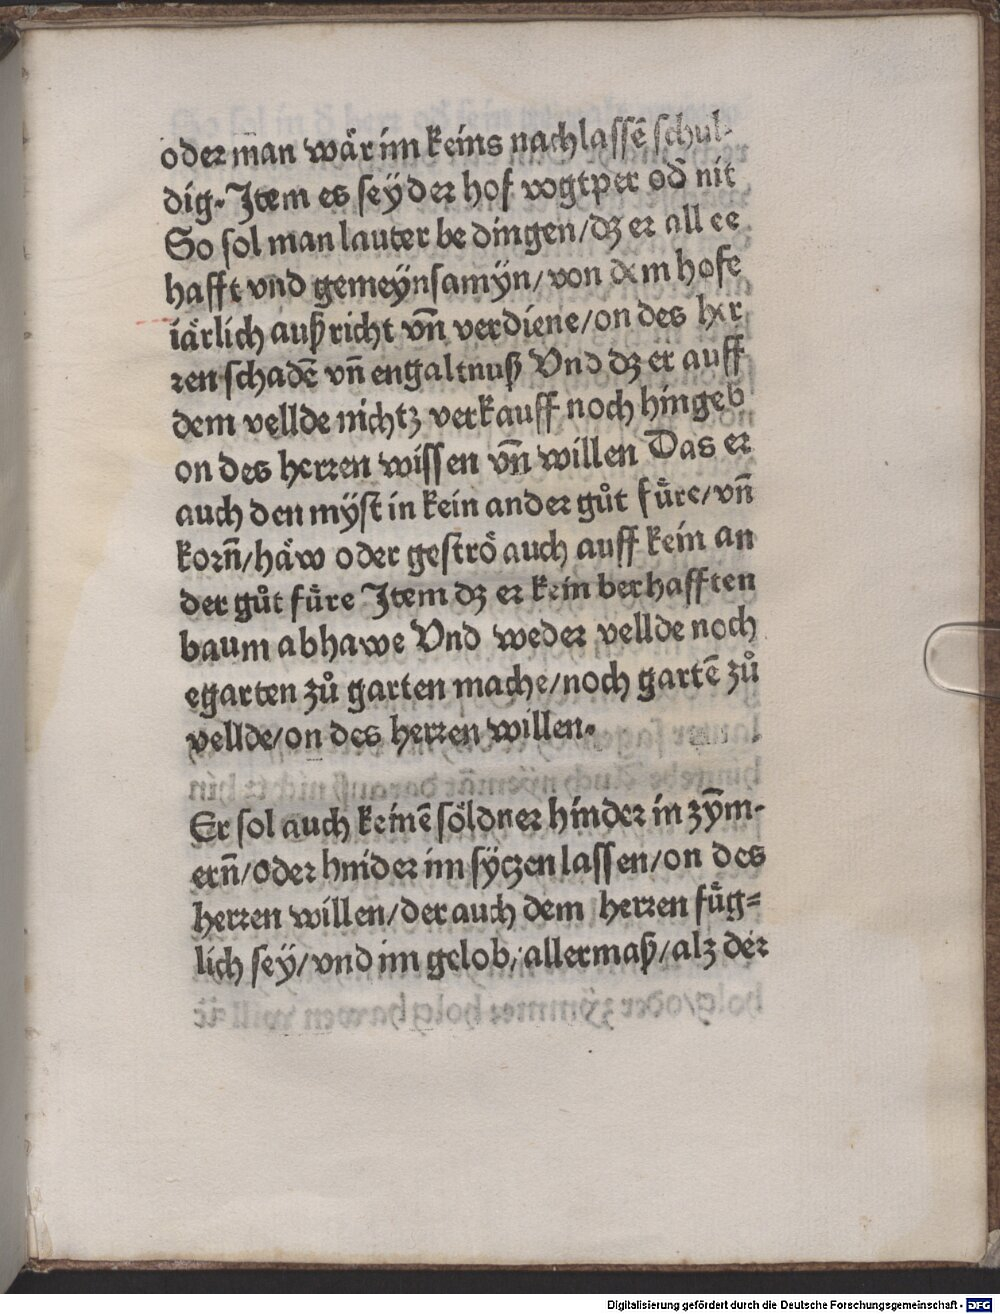 oder man wår im keins nachlassē schul-
dig. Item es seÿ der hof vogtper od̄ nit
So sol man lauter be dingen/dʒ er all ee
hafft vnd gemeÿnsamÿn/von dem hofe
iårlich außricht vn̄ verdiene/on des her
ren schadē vn̄ engaltnuß Vnd dʒ er auff
dem vellde nichtz verkauff noch hingeb
on des herren wissen vn̄ willen Das er
auch den mÿst in kein ander gůt fůre/vn̄
korn̄/håw oder geströ auch auff kein an
der gůt fůre Item dʒ er kein berhafften
baum abhawe Vnd weder vellde noch
egarten zů garten mache/noch gartē zů
vellde/on des herren willen.
Er sol auch keinē söldner hinder in zÿm-
ern̄/oder hnider im sÿczen lassen/on des
herren willen/der auch dem herren fůg=
lich seÿ/vnd im gelob/allermaß/alz der
Digitalisierung gefördert durch die Deutsche Forschungsgemeinschaft - DFG